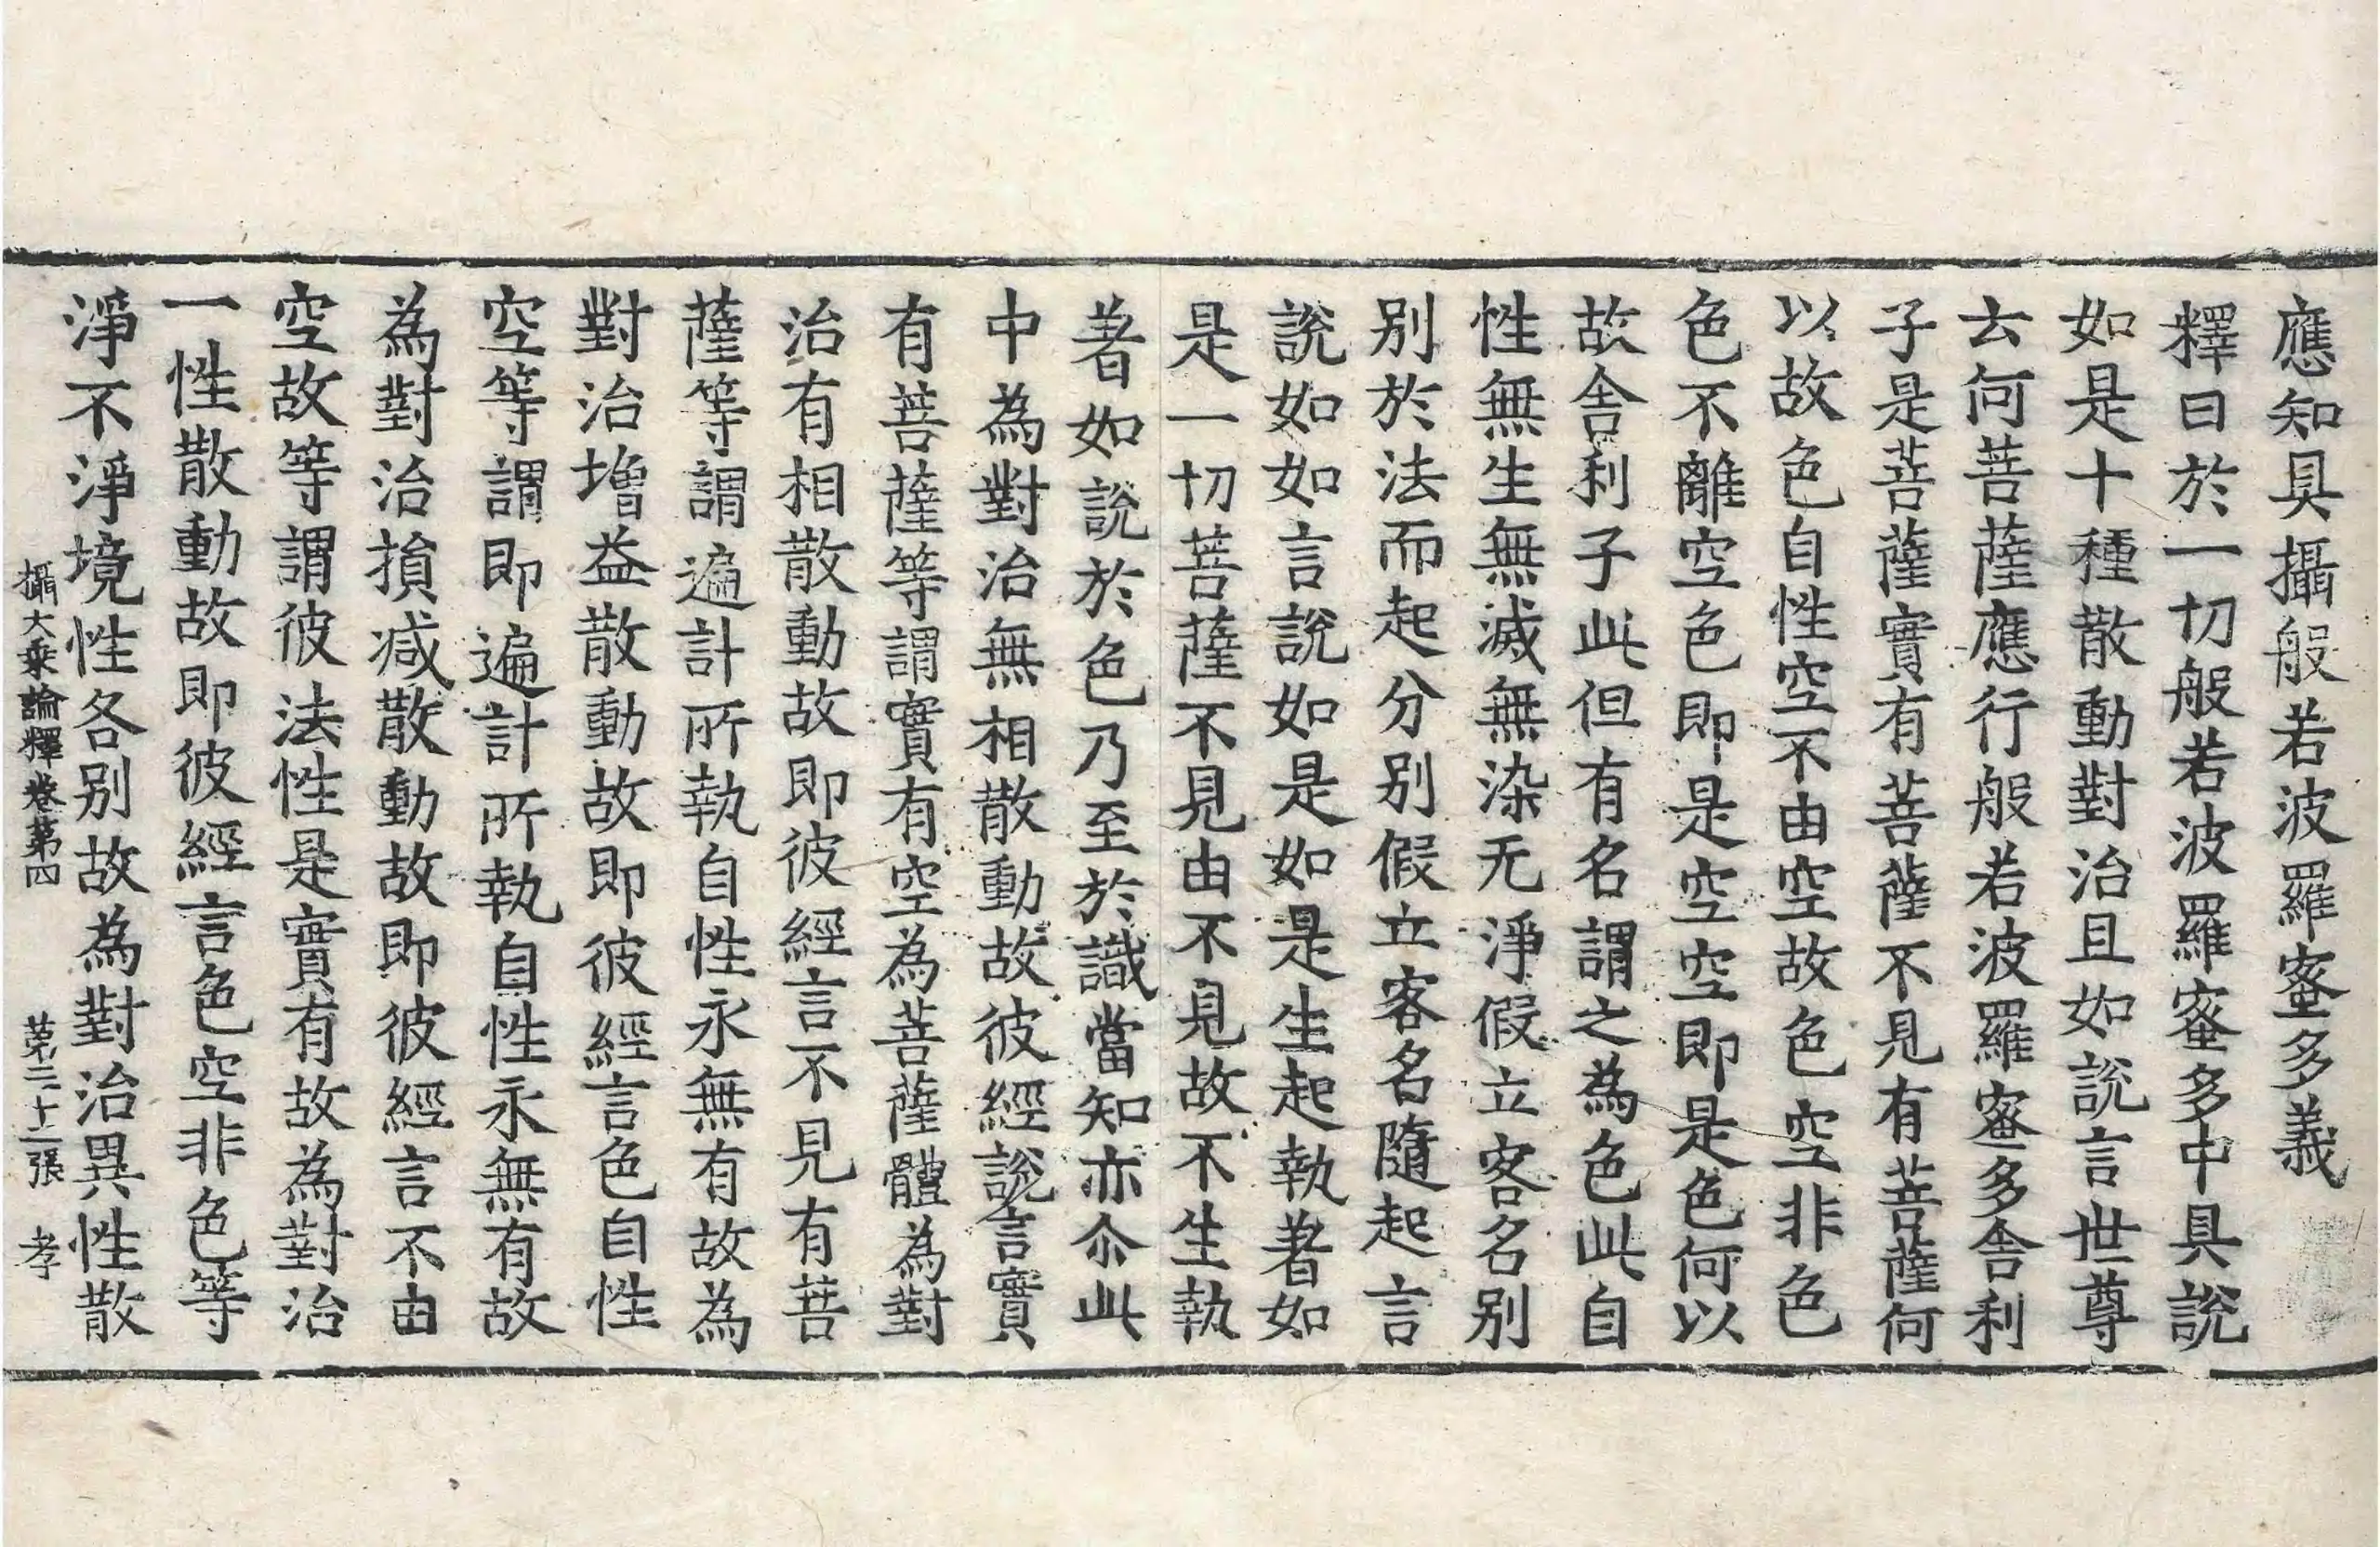 應知具攝般若波羅蜜多義
釋曰於一切般若波羅蜜多中具說
如是十種散動對治且如說言世尊
云何菩薩應行般若波羅蜜多舍利
子是菩薩實有菩薩不見有菩薩何
以故色自性空不由空故色空非色
色不離空色即是空空即是色何以
故舍利子此但有名謂之為色此自
性無生無滅無染无淨假立客名別
別於法而起分別假立客名隨起言
說如如言說如是如是生起執著如
是一切菩薩不見由不見故不生執
著如說於色乃至於識當知亦尒此
中為對治無相散動故彼經說言實
有菩薩等謂實有空為菩薩體為對
治有相散動故即彼經言不見有菩
薩等謂遍計所執自性永無有故為
對治增益散動故即彼經言色自性
空等謂即遍計所執自性永無有故
為對治損减散動故即彼經言不由
空故等謂彼法性是實有故為對治
一性散動故即彼經言色空非色等
淨不淨境性各別故為對治異性散
攝大乗論釋卷第四 第二十二張 孝